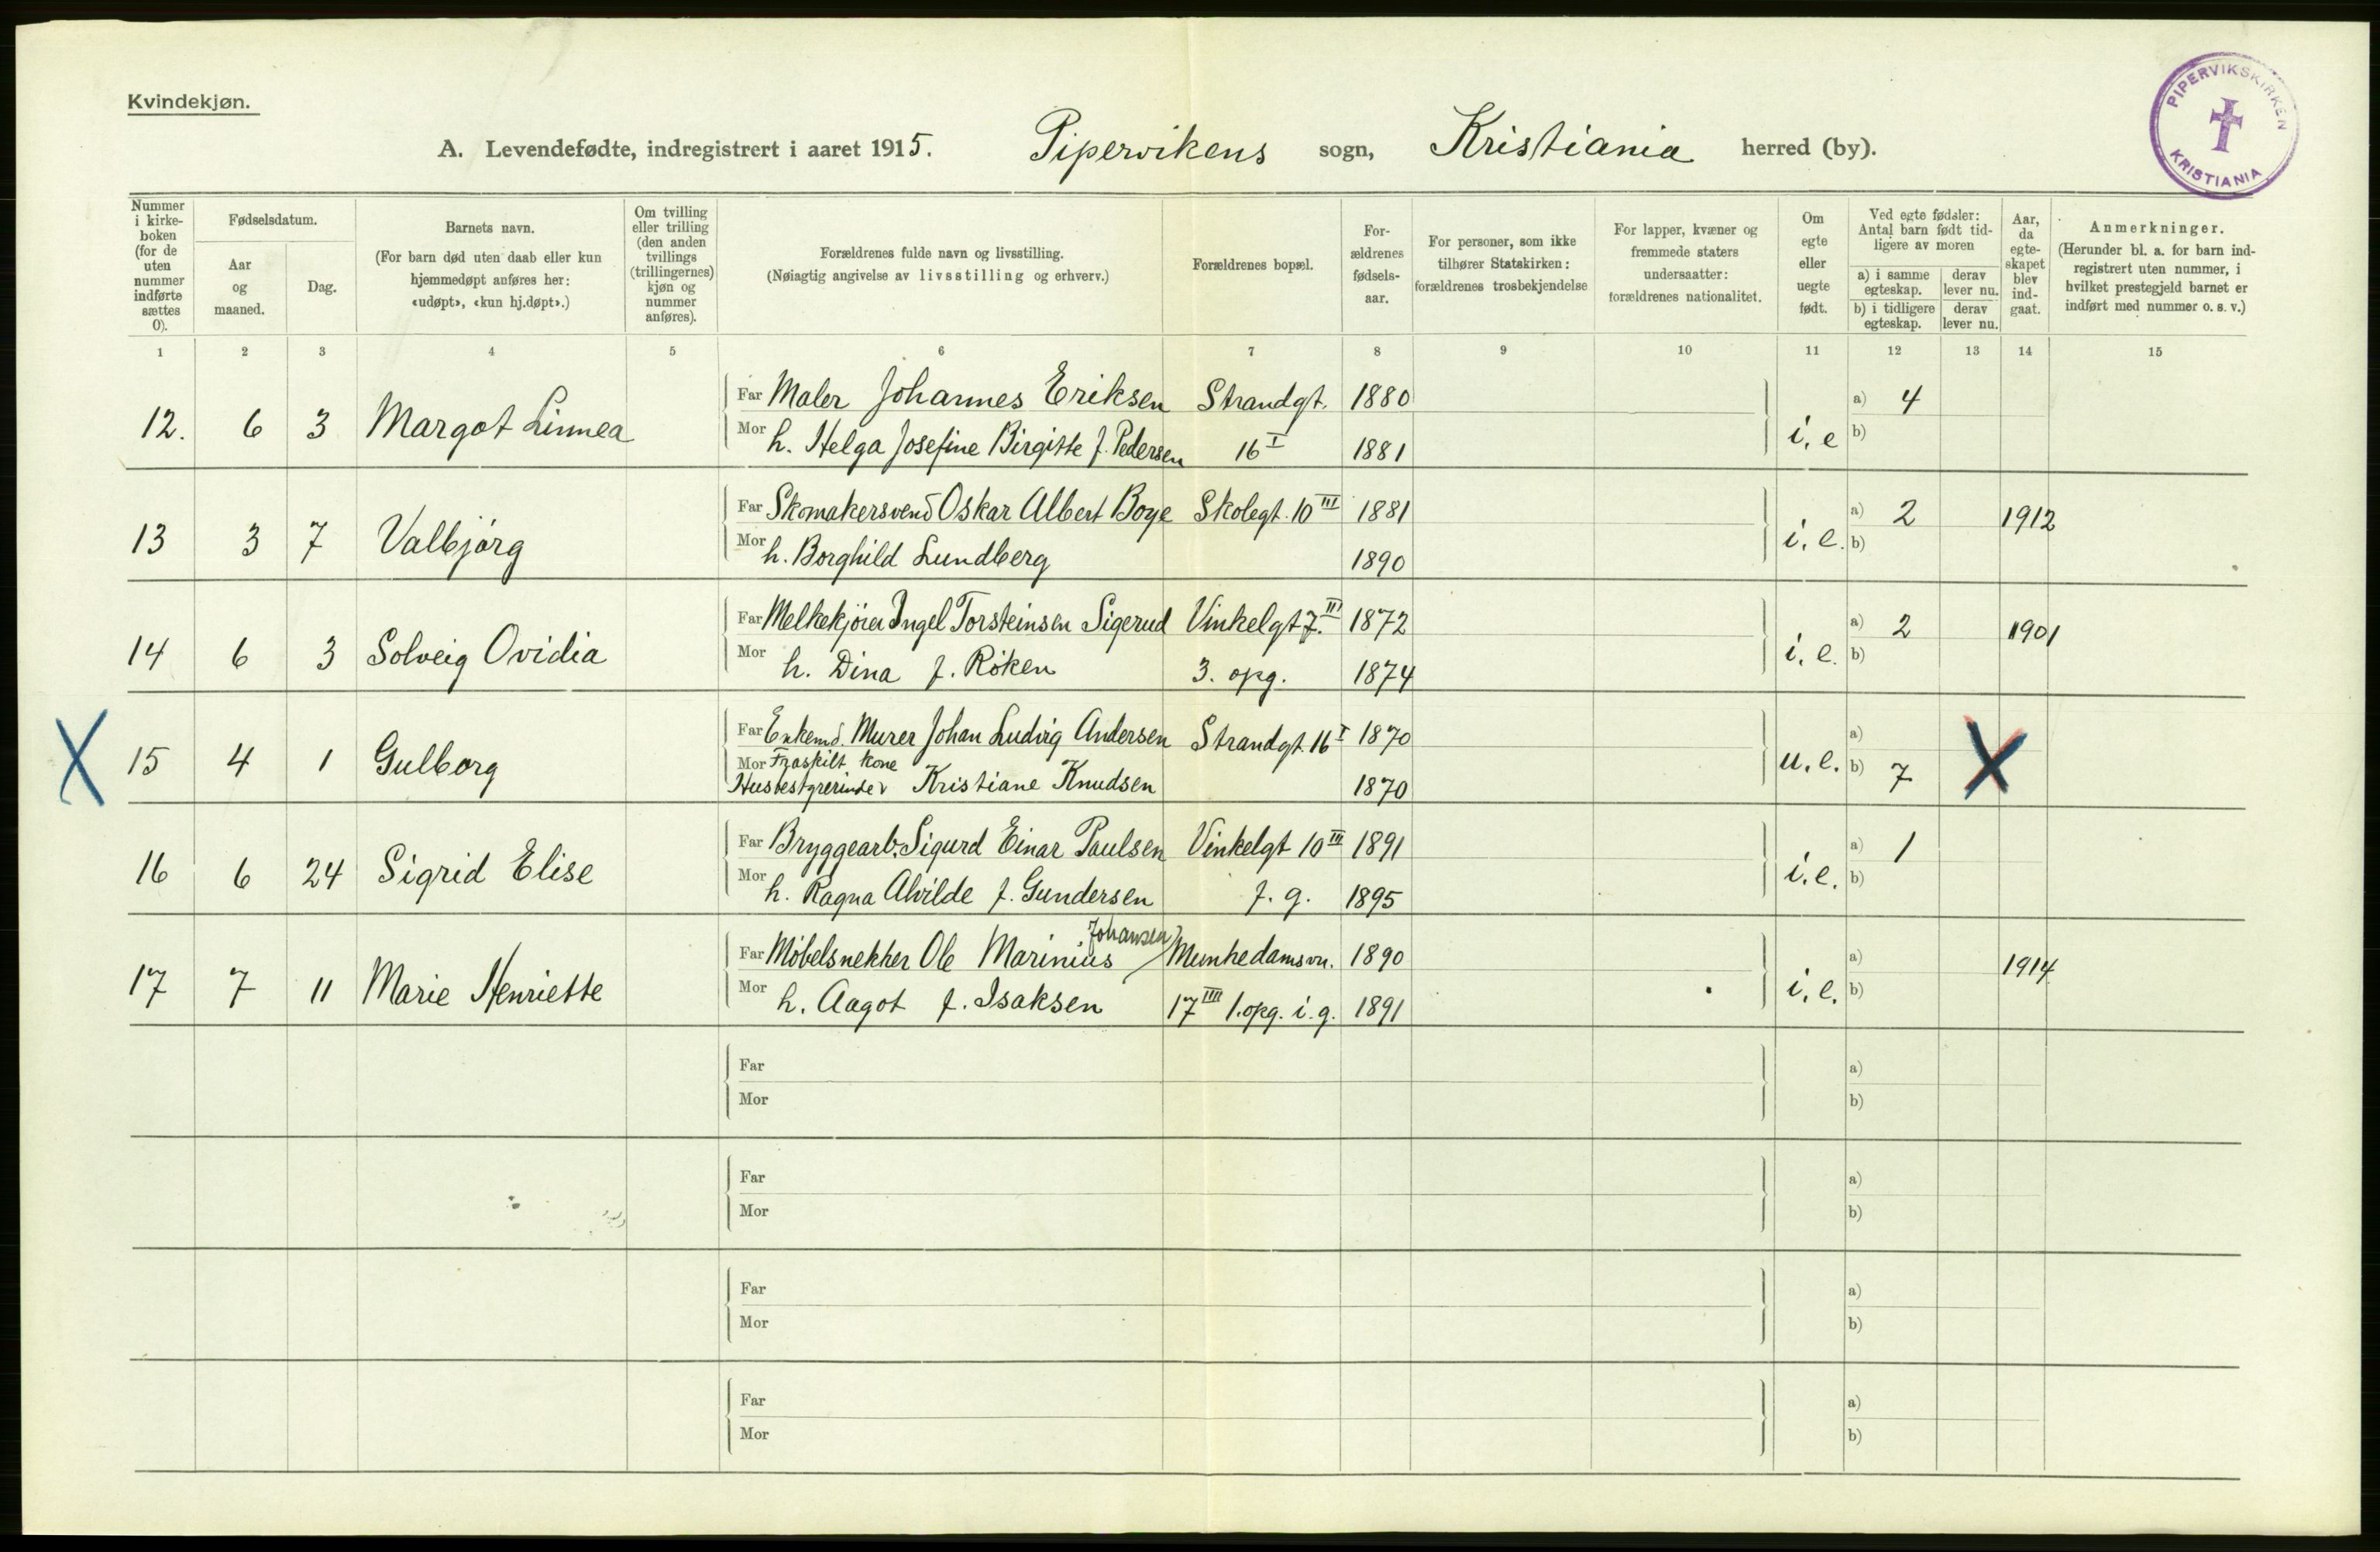 Kvindekjøn.
A. Levendefødte, indregistrert i aaret 1915. Pipervikens sogn, Kristiania herred (by).
PIPERVIKSKIRKEN
KRISTIANIA
Nummer i kirke-boken (for de uten nummer indførte sættes 0).
Fødselsdatum.
Aar og maaned.
Dag.
Barnets navn.
(For barn død uten daab eller kun hjemmedøpt anføres her: «udøpt», «kun hj.døpt».)
Om tvilling eller trilling (den anden tvillings (trillingernes) kjøn og nummer anføres).
Forældrenes fulde navn og livsstilling.
(Nøiagtig angivelse av livsstilling og erhverv.)
Forældrenes bopæl.
For-ældrenes fødsels-aar.
For personer, som ikke tilhører Statskirken: forældrenes trosbekjendelse
For lapper, kvæner og fremmede staters undersaatter: forældrenes nationalitet.
Om egte eller uegte født.
Ved egte fødsler: Antal barn født tid-ligere av moren
a) i samme egteskap.
derav lever nu.
b) i tidligere egteskap.
derav lever nu.
Aar, da egte-skapet blev ind-gaat.
Anmerkninger.
(Herunder bl. a. for barn ind-registrert uten nummer, i hvilket prestegjeld barnet er indført med nummer o. s. v.)
1 2 3 4 5 6 7 8 9 10 11 12 13 14 15
Far Maler Johannes Eriksen Strandgt. 1880 a) 4
12. 6 3 Margot Linnea i, e
Mor h. Helga Josefine Birgitte f. Pedersen 16 I 1881 b)
Far Skomakersvend Oskar Albert Boye Skolegt. 10 III 1881 a) 2 1912
13 3 7 Valbjørg i, e.
Mor h. Borghild Lundberg 1890 b)
Far Melkekjører Ingel Torsteinsen Sigerud Vinkelgt 7. III 1872 a) 2 1901
14 6 3 Solveig Ovidia i, e.
Mor h. Dina f. Røken 3. opg. 1874 b)
Far Enkemd. Murer Johan Ludvig Andersen Strandgt. 16 I 1870 a)
X 15 4 1 Gulborg u. e. X
Mor Fraskilt kone
Husbestyrerinde Kristiane Knudsen 1870 b) 7
Far Bryggearb. Sigurd Einar Paulsen Vinkelgt 10 III 1891 a) 1
16 6 24 Sigrid Elise i. e.
Mor h. Ragna Alvilde f. Gundersen f. g. 1895 b)
Johansen
Far Møbelsnekker Ole Marinius Munkedamsvn. 1890 a) 1914
17 7 11 Marie Henriette i, e.
Mor h. Aagot f. Isaksen 17 IIII 1. opg. i. g. 1891 b)
Far a)
Mor b)
Far a)
Mor b)
Far a)
Mor b)
Far a)
Mor b)